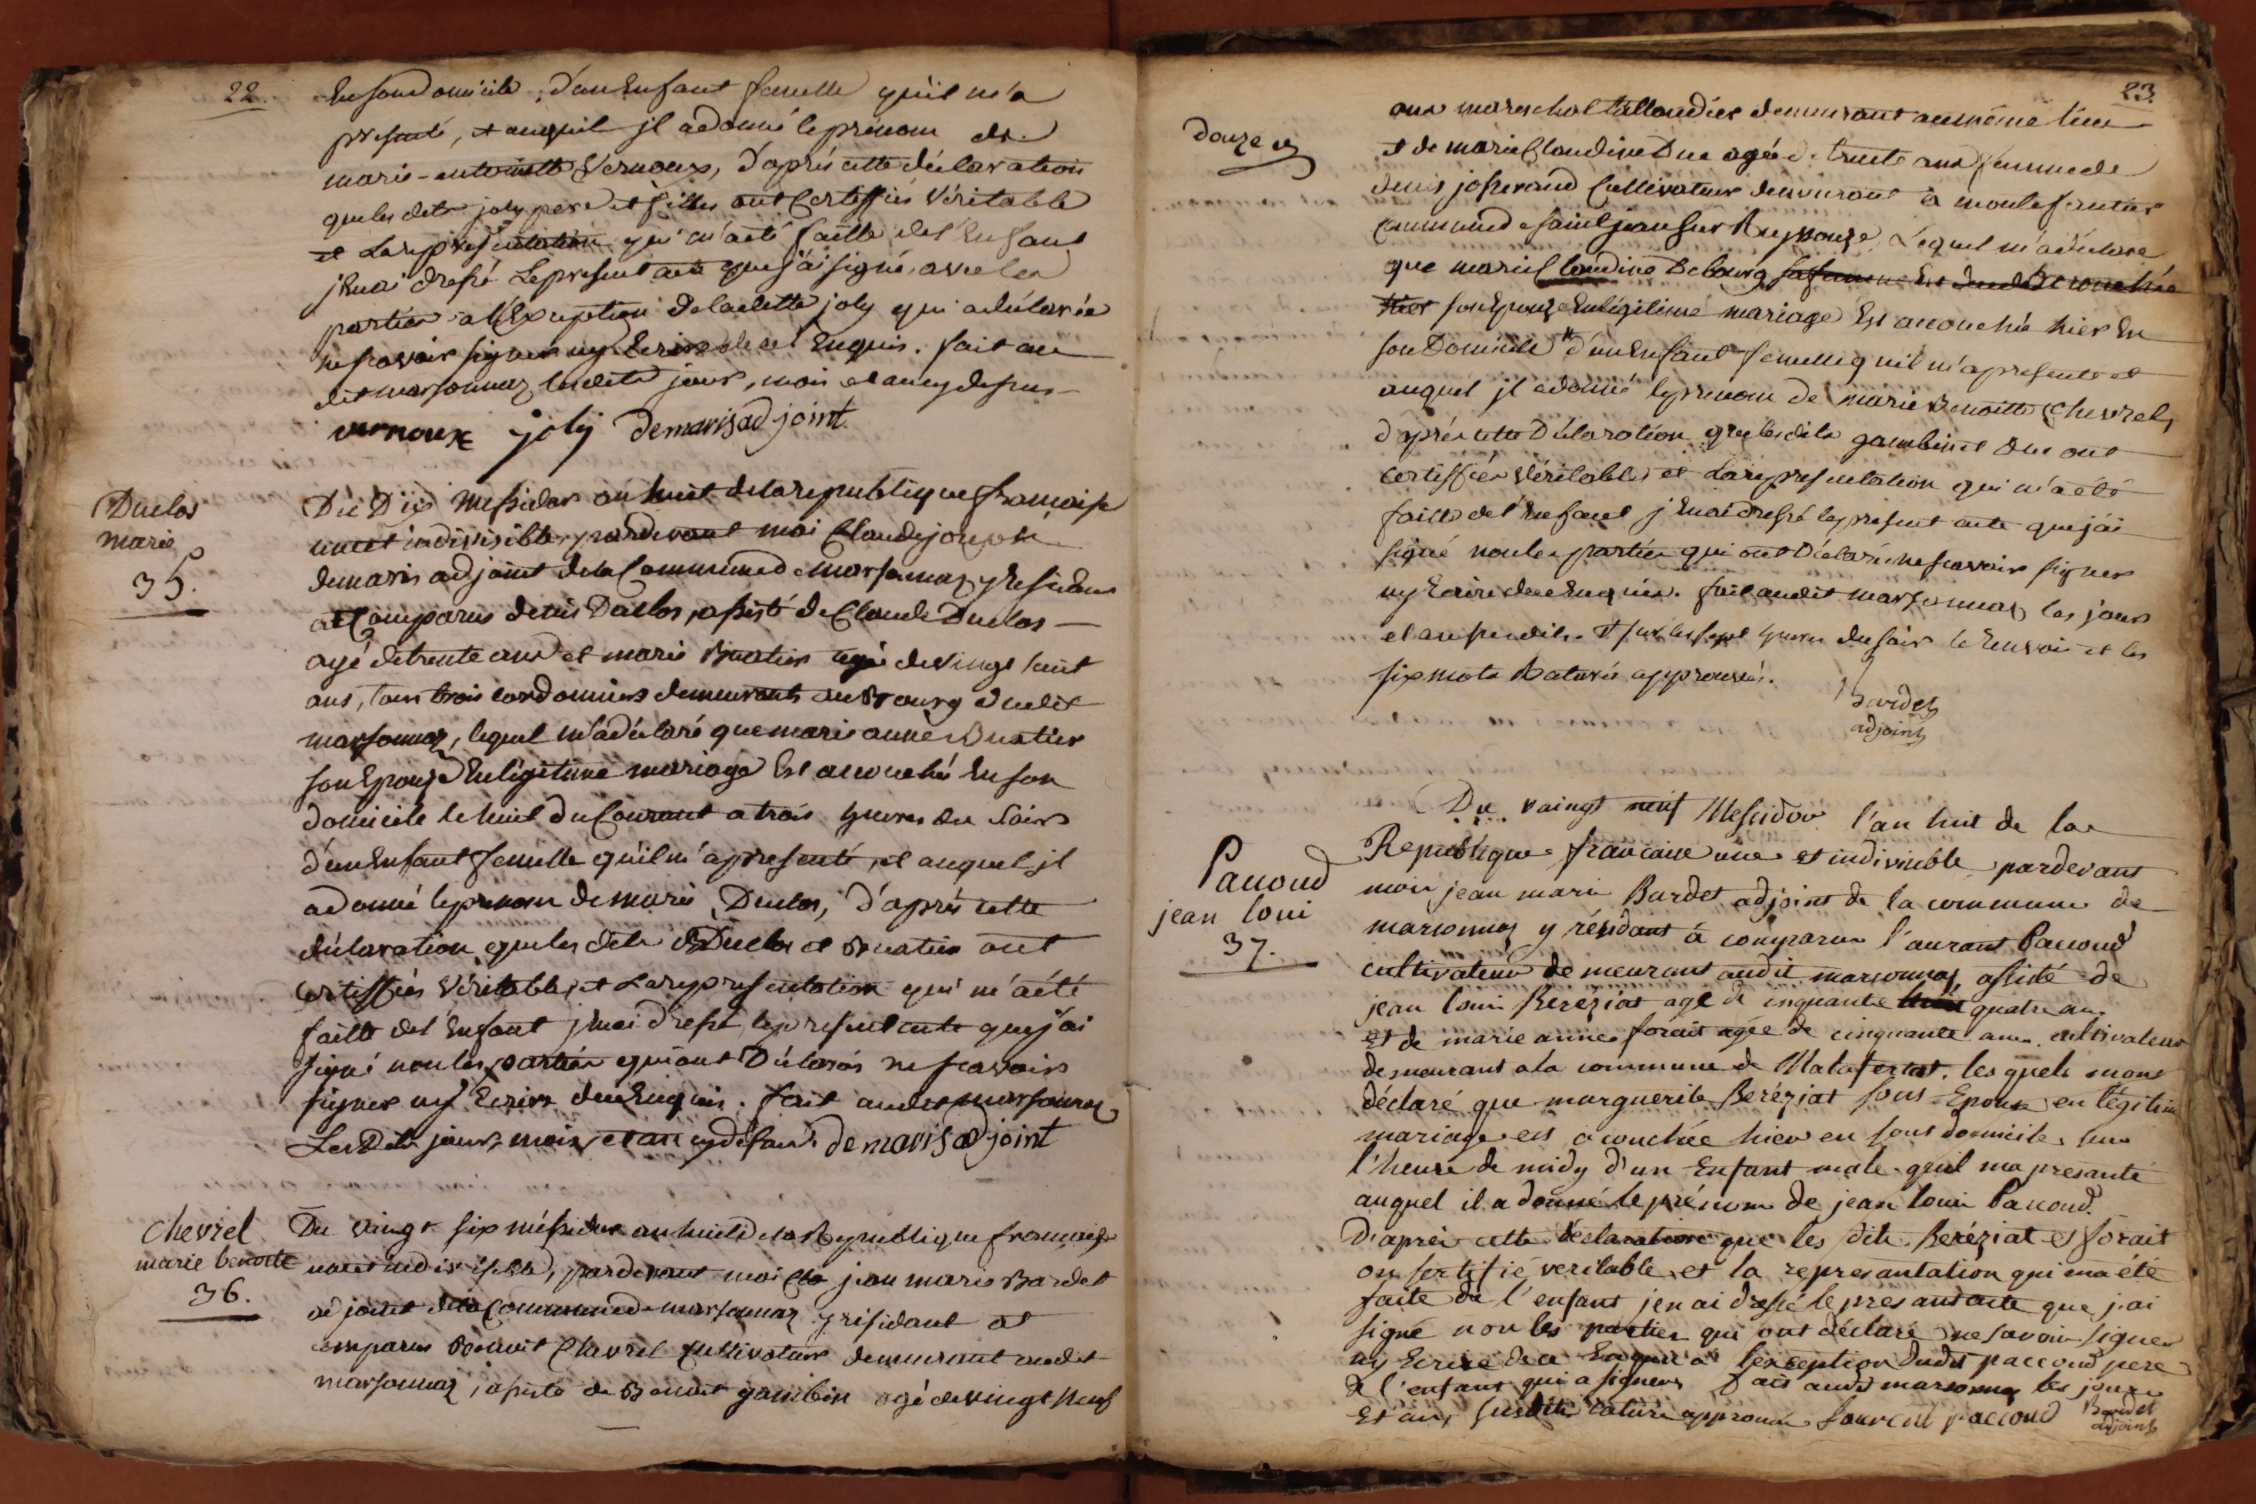 22.
En son domicile, d'un Enfant femelle qu'il m'a
presenté, et auquel jl a donné le prenom de
marie-antoinette Vernoux, d'après cette déclaration
que les dits joly pere et filles ont Certiffiés Véritable
et La representation qui m'a été faitte de l'Enfant
j'En ai dressé Le present acte que j'ai signé, avec les
parties a l'Exception de laditte joly qui a déclarée
ne scavoir signer ny Ecrire de ce Enquis. fait au
dit marsonnaz lesdits jour, mois et an cy dessus
vernoux joly demaris adjoint
Duclos
marie
35.
Du Dix Messidor an huit de la republique francaise
une et indivisible, pardevant moi Claude joseph
demaris adjoint de la Commune de marsonnaz y residant
at Comparus denis Duclos, assisté de Claude Duclos
agé de trente ans et marie Buatier agée de vingt huit
ans, tous trois cordonniers demeurants au Bourg dudit
marsonnaz, lequel m'a déclaré que marie anne Buatier
son Epouze En légitime mariage Est accouchée En son
domicile le huit du Courant a trois heures du soir
d'un Enfant femelle qu'il m'a presenté, et auquel jl
a donné le prenom de marie Duclos, d'après cette
déclaration que les dits Duclos et Buatier ont
certiffiés Véritable, et La representation qui m'a été
faitte de l'Enfant j'En ai dressé le present acte que j'ai
signé non les parties qui ont Déclarés ne scavoir
signer ny Ecrire de ce Enquis. fait audit marsonnaz
Lesdits jour, mois et an cy dessus. demaris adjoint
Chevrel
marie benoite
36.
Du vingt six méssidor an huit de la Republique francaise
une et indivisible, pardevant moi jean marie Bardet
adjoint de la Commune de marsonnaz y résidant at
comparus Benoit Chavrel Cultivateur demeurant audit
marsonnaz, assisté de Benoit gambin agé de vingt neuf
23.
douze
ans mareschal tallandier demeurant au même lieu
et de marie Claudine Duc agée de trente ans femme de
denis josserand Cultivateur demeurant à
commune de saint jean sur Reyssouze, Lequel m'a déclaré
que marie Claudine Debourg sa femme Est
hier son Epouze En légitime mariage Est accouchée hier En
son Domicile d'un Enfant femelle qu'il m'a presenté et
auquel jl a donné le prenom de marie Benoitte Chevrel,
d'après cette Déclaration que les dits gambin et Duc ont
certiffiés Véritable, et La representation qui m'a été
faitte de l'Enfant j'En ai dressé le present acte que j'ai
signé non les parties qui ont Déclaré ne scavoir signer
ny Ecrire de ce Enquis. fait audit marsonnaz les jour
et an susdits. # sur les sept heures du soir le Renvoi et les
six mots Raturés approuvés.
Bardet
adjoint
Du vaingt neuf Messidor l'an huit de la
Republique francaise une et indivisible pardevant
Pacoud
jean loui
37.
moi jean marie Bardet adjoint de la commune de
marsonnaz y résidant à comparu l'aurant Pacoud
cultivateur demeurant audit marsonnaz, assisté de
jean loui Beréziat agé de cinquante huit quatre ans
et de marie anne forait agée de cinquante ans cultivateur
demeurant a la commune de Malafertat. les quels mont
déclaré que marguerite Beréziat sont Epouse en légitime
mariage est acouchée hier en sont domicile sur
l'heure de midy d'un Enfant male quil ma presanté
auquel il a donné le prénom de jean loui Pacoud.
D'aprés cette declaration que les dits Beréziat et forait
on sertifié veritable et la represantation qui ma été
faite de l'enfant j'en ai dressé le presant acte que j'ai
signé non les parties qui ont déclaré ne savoir signer
ny Ecrire de ce Enquis a l'exception dudit paccoud pere
de l'enfant qui a signer fait audit marsonnaz les jour
Et an susdits rature approuvé Laurent paccoud Bardet
adjoint